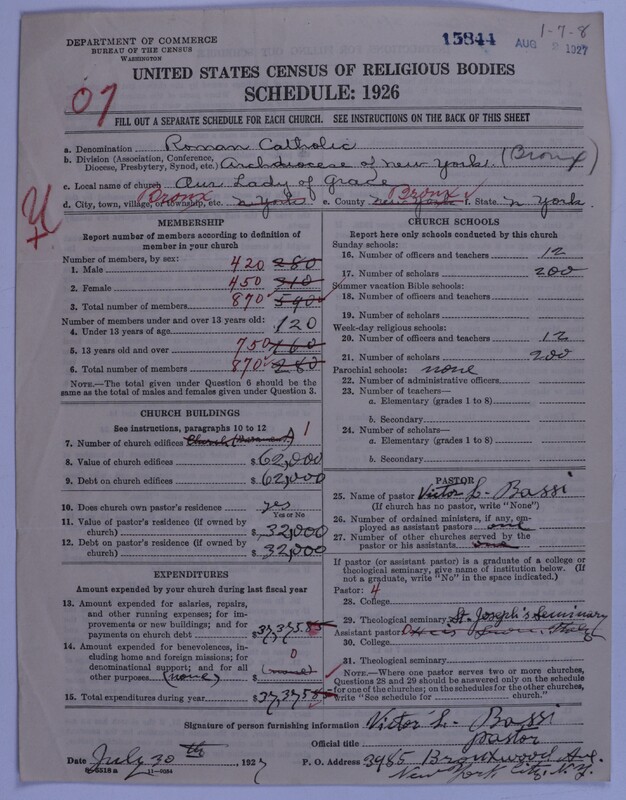 DEPARTMENT OF COMMERCE
BUREAU OF THE CENSUS
WASHINGTON
15844
AUG 2 1927
1-7-8
UNITED STATES CENSUS OF RELIGIOUS BODIES
SCHEDULE: 1926
07
FILL OUT A SEPARATE SCHEDULE FOR EACH CHURCH. SEE INSTRUCTIONS ON THE BACK OF THIS SHEET
a. Denomination Roman Catholic
b. Division (Association, Conference, Diocese, Presbytery, Synod, etc.) Archdiocese of New York. (Bronx)
c. Local name of church Our Lady of Grace
d. City, town, village, or township, etc. Bronx N York e. County Bronx New York f. State N York.
MEMBERSHIP
Report number of members according to definition of
member in your church
Number of members, by sex:
1. Male 420 280
2. Female 450 310
3. Total number of members 870 590
Number of members under and over 13 years old:
4. Under 13 years of age 120
5. 13 years old and over 750 160
6. Total number of members 870 280
NOTE.—The total given under Question 6 should be
the same as the total of males and females given under Question 3.
CHURCH BUILDINGS
See instructions, paragraphs 10 to 12
7. Number of church edifices Church 1
8. Value of church edifices $ 62,000
9. Debt on church edifices $ 62,000
10. Does church own pastor's residence? yes
Yes or No
11. Value of pastor's residence (if owned by
church) $ 32,000
12. Debt on pastor's residence (if owned by
church) $ 32,000
EXPENDITURES
Amount expended by your church during last fiscal year
13. Amount expended for salaries, repairs,
and other running expenses; for im-
provements or new buildings; and for
payments on church debt $ 37,375.85
14. Amount expended for benevolences, in-
cluding home and foreign missions; for
denominational support; and for all
other purposes (none) $ (none) 0
15. Total expenditures during year $ 37,375.85
CHURCH SCHOOLS
Report here only schools conducted by this church
Sunday schools:
16. Number of officers and teachers 12
17. Number of scholars 200
Summer vacation Bible schools:
18. Number of officers and teachers
19. Number of scholars
Week-day religious schools:
20. Number of officers and teachers 12
21. Number of scholars 200
Parochial schools: none
22. Number of administrative officers
23. Number of teachers—
a. Elementary (grades 1 to 8)
b. Secondary
24. Number of scholars—
a. Elementary (grades 1 to 8)
b. Secondary
PASTOR
25. Name of pastor Victor L. Bassi
(If church has no pastor, write "None")
26. Number of ordained ministers, if any, em-
ployed as assistant pastors one
27. Number of other churches served by the
pastor or his assistants one
If pastor (or assistant pastor) is a graduate of a college or
theological seminary, give name of institution below. (If
not a graduate, write "No" in the space indicated.)
Pastor: 4
28. College
29. Theological seminary St. Joseph's Seminary
Assistant pastor:
30. College
31. Theological seminary
NOTE.—Where one pastor serves two or more churches,
Questions 28 and 29 should be answered only on the schedule
for one of the churches; on the schedules for the other churches,
write "See schedule for church."
Signature of person furnishing information Victor L. Bassi
Official title pastor
Date July 30th, 1927 P. O. Address 3985 Bronxwood Ave.
New York City, N.Y.
8-6518a 11-9054